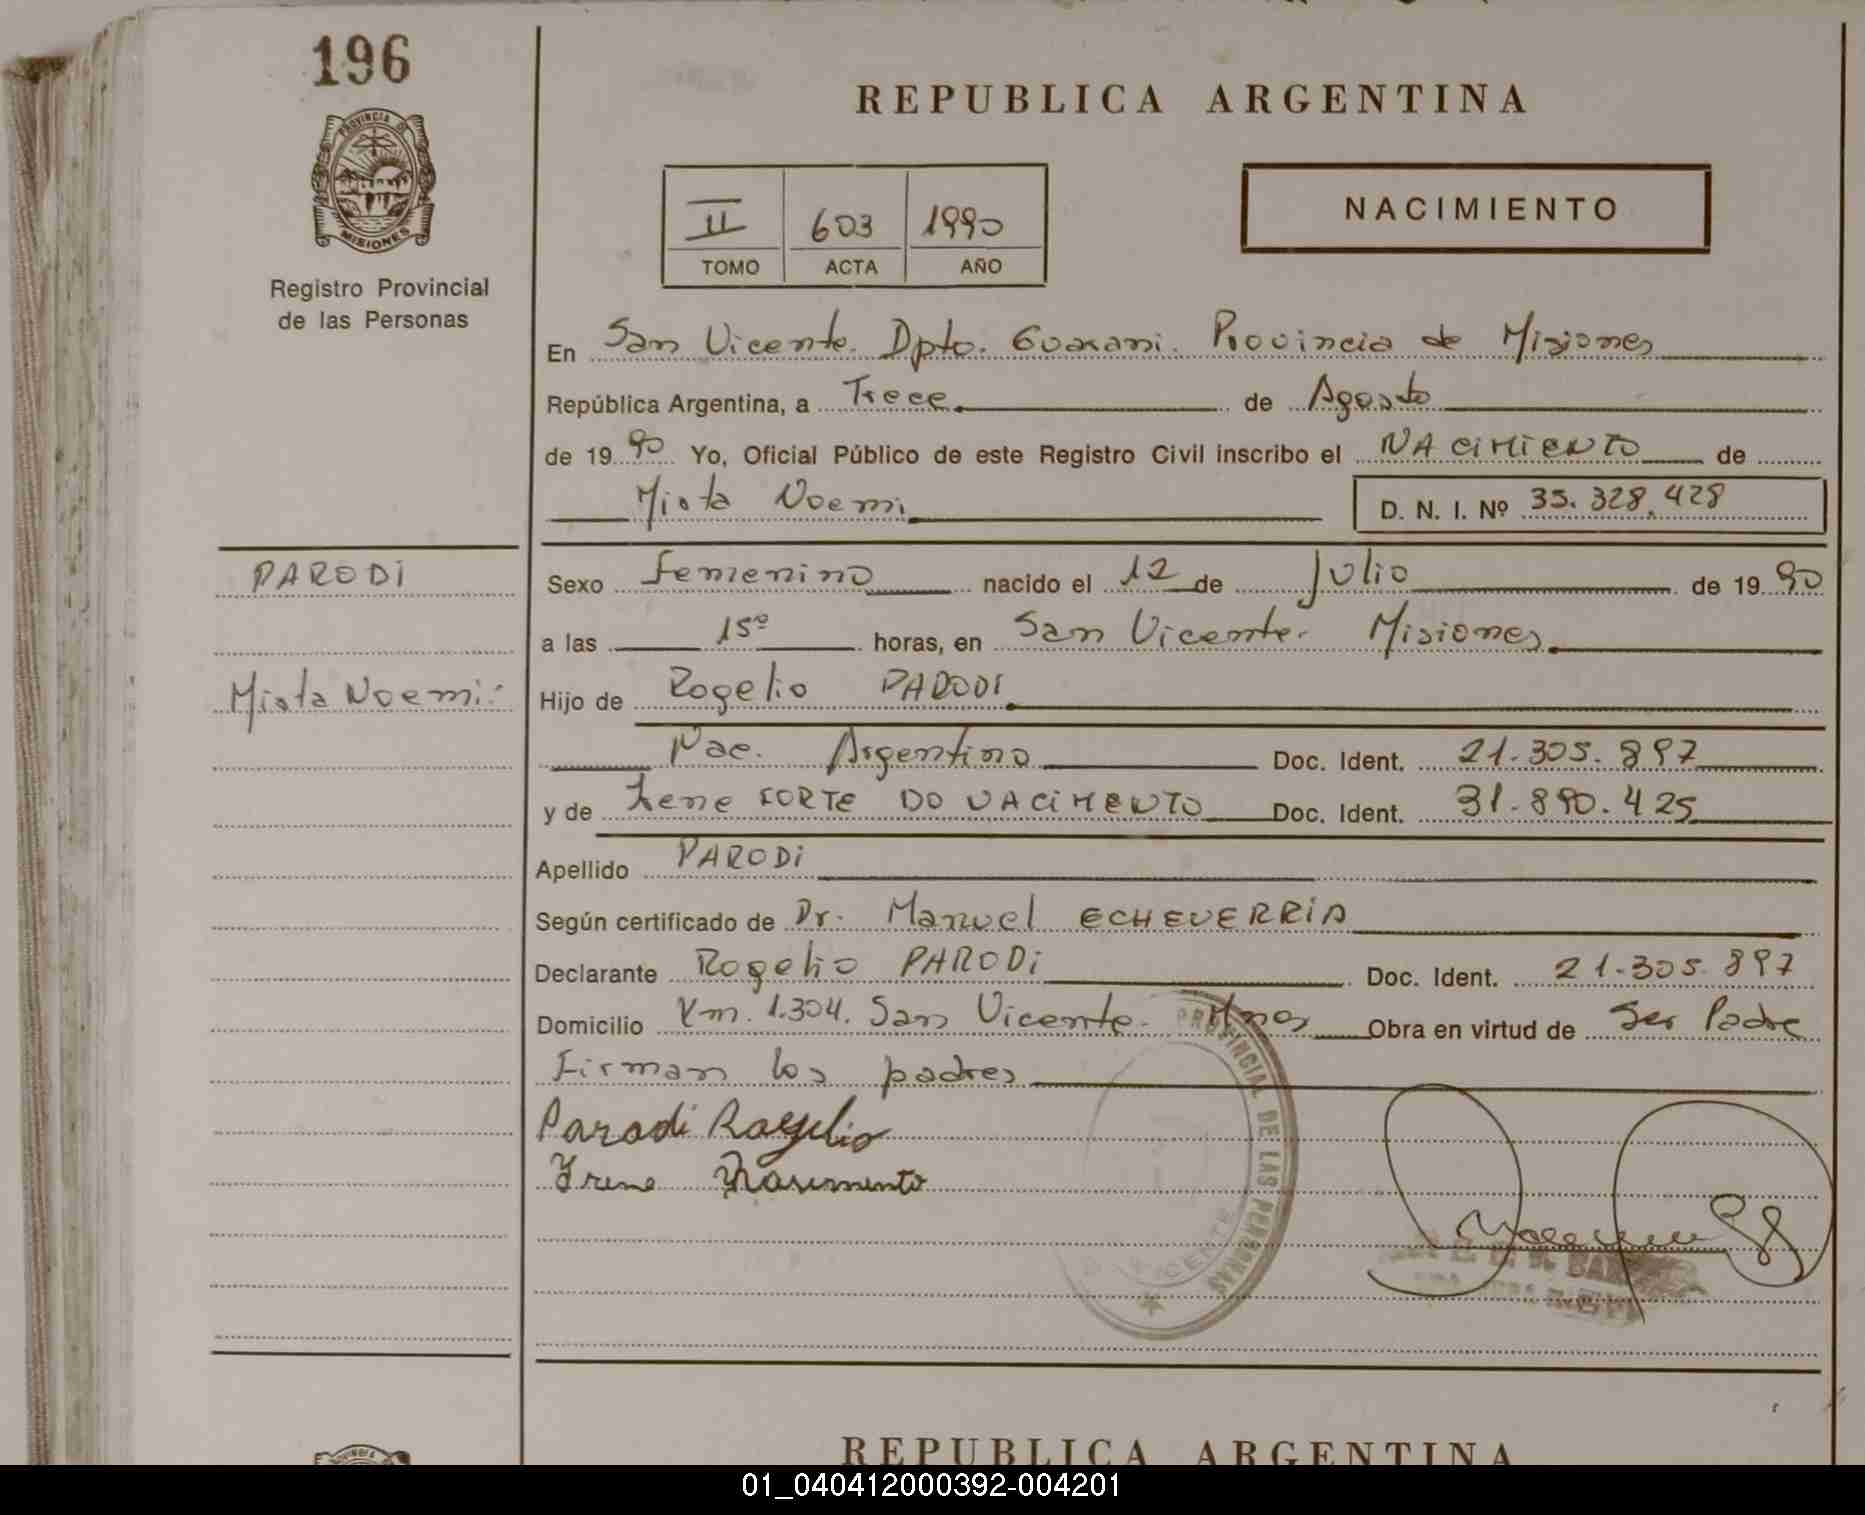 196
PROVINCIA DE
MISIONES
Registro Provincial
de las Personas
REPUBLICA ARGENTINA
II 603 1990
TOMO ACTA AÑO
NACIMIENTO
En San Vicente. Dpto. Guarani. Provincia de Misiones
República Argentina, a Trece de Agosto
de 19 90 Yo, Oficial Público de este Registro Civil inscribo el NACIMIENTO de
Mirta Noemi D. N. I. Nº 35.328.428
PARODI
Mirta Noemi:
Sexo Femenino nacido el 12 de Julio de 19 90
a las 15º horas, en San Vicente. Misiones
Hijo de Rogelio PARODI
Nac. Argentino Doc. Ident. 21.305.897
y de Irene FORTE DO NACIMENTO Doc. Ident. 31.890.425
Apellido PARODI
Según certificado de Dr. Manuel ECHEVERRIA
Declarante Rogelio PARODI Doc. Ident. 21.305.897
Domicilio Km. 1.304. San Vicente. Mnes Obra en virtud de Ser Padre
Firman los padres
Parodi Rogelio
Irene Nasimento
PROVINCIAL DE LAS PERSONAS
VICENTE
REPUBLICA ARGENTINA
01_040412000392-004201